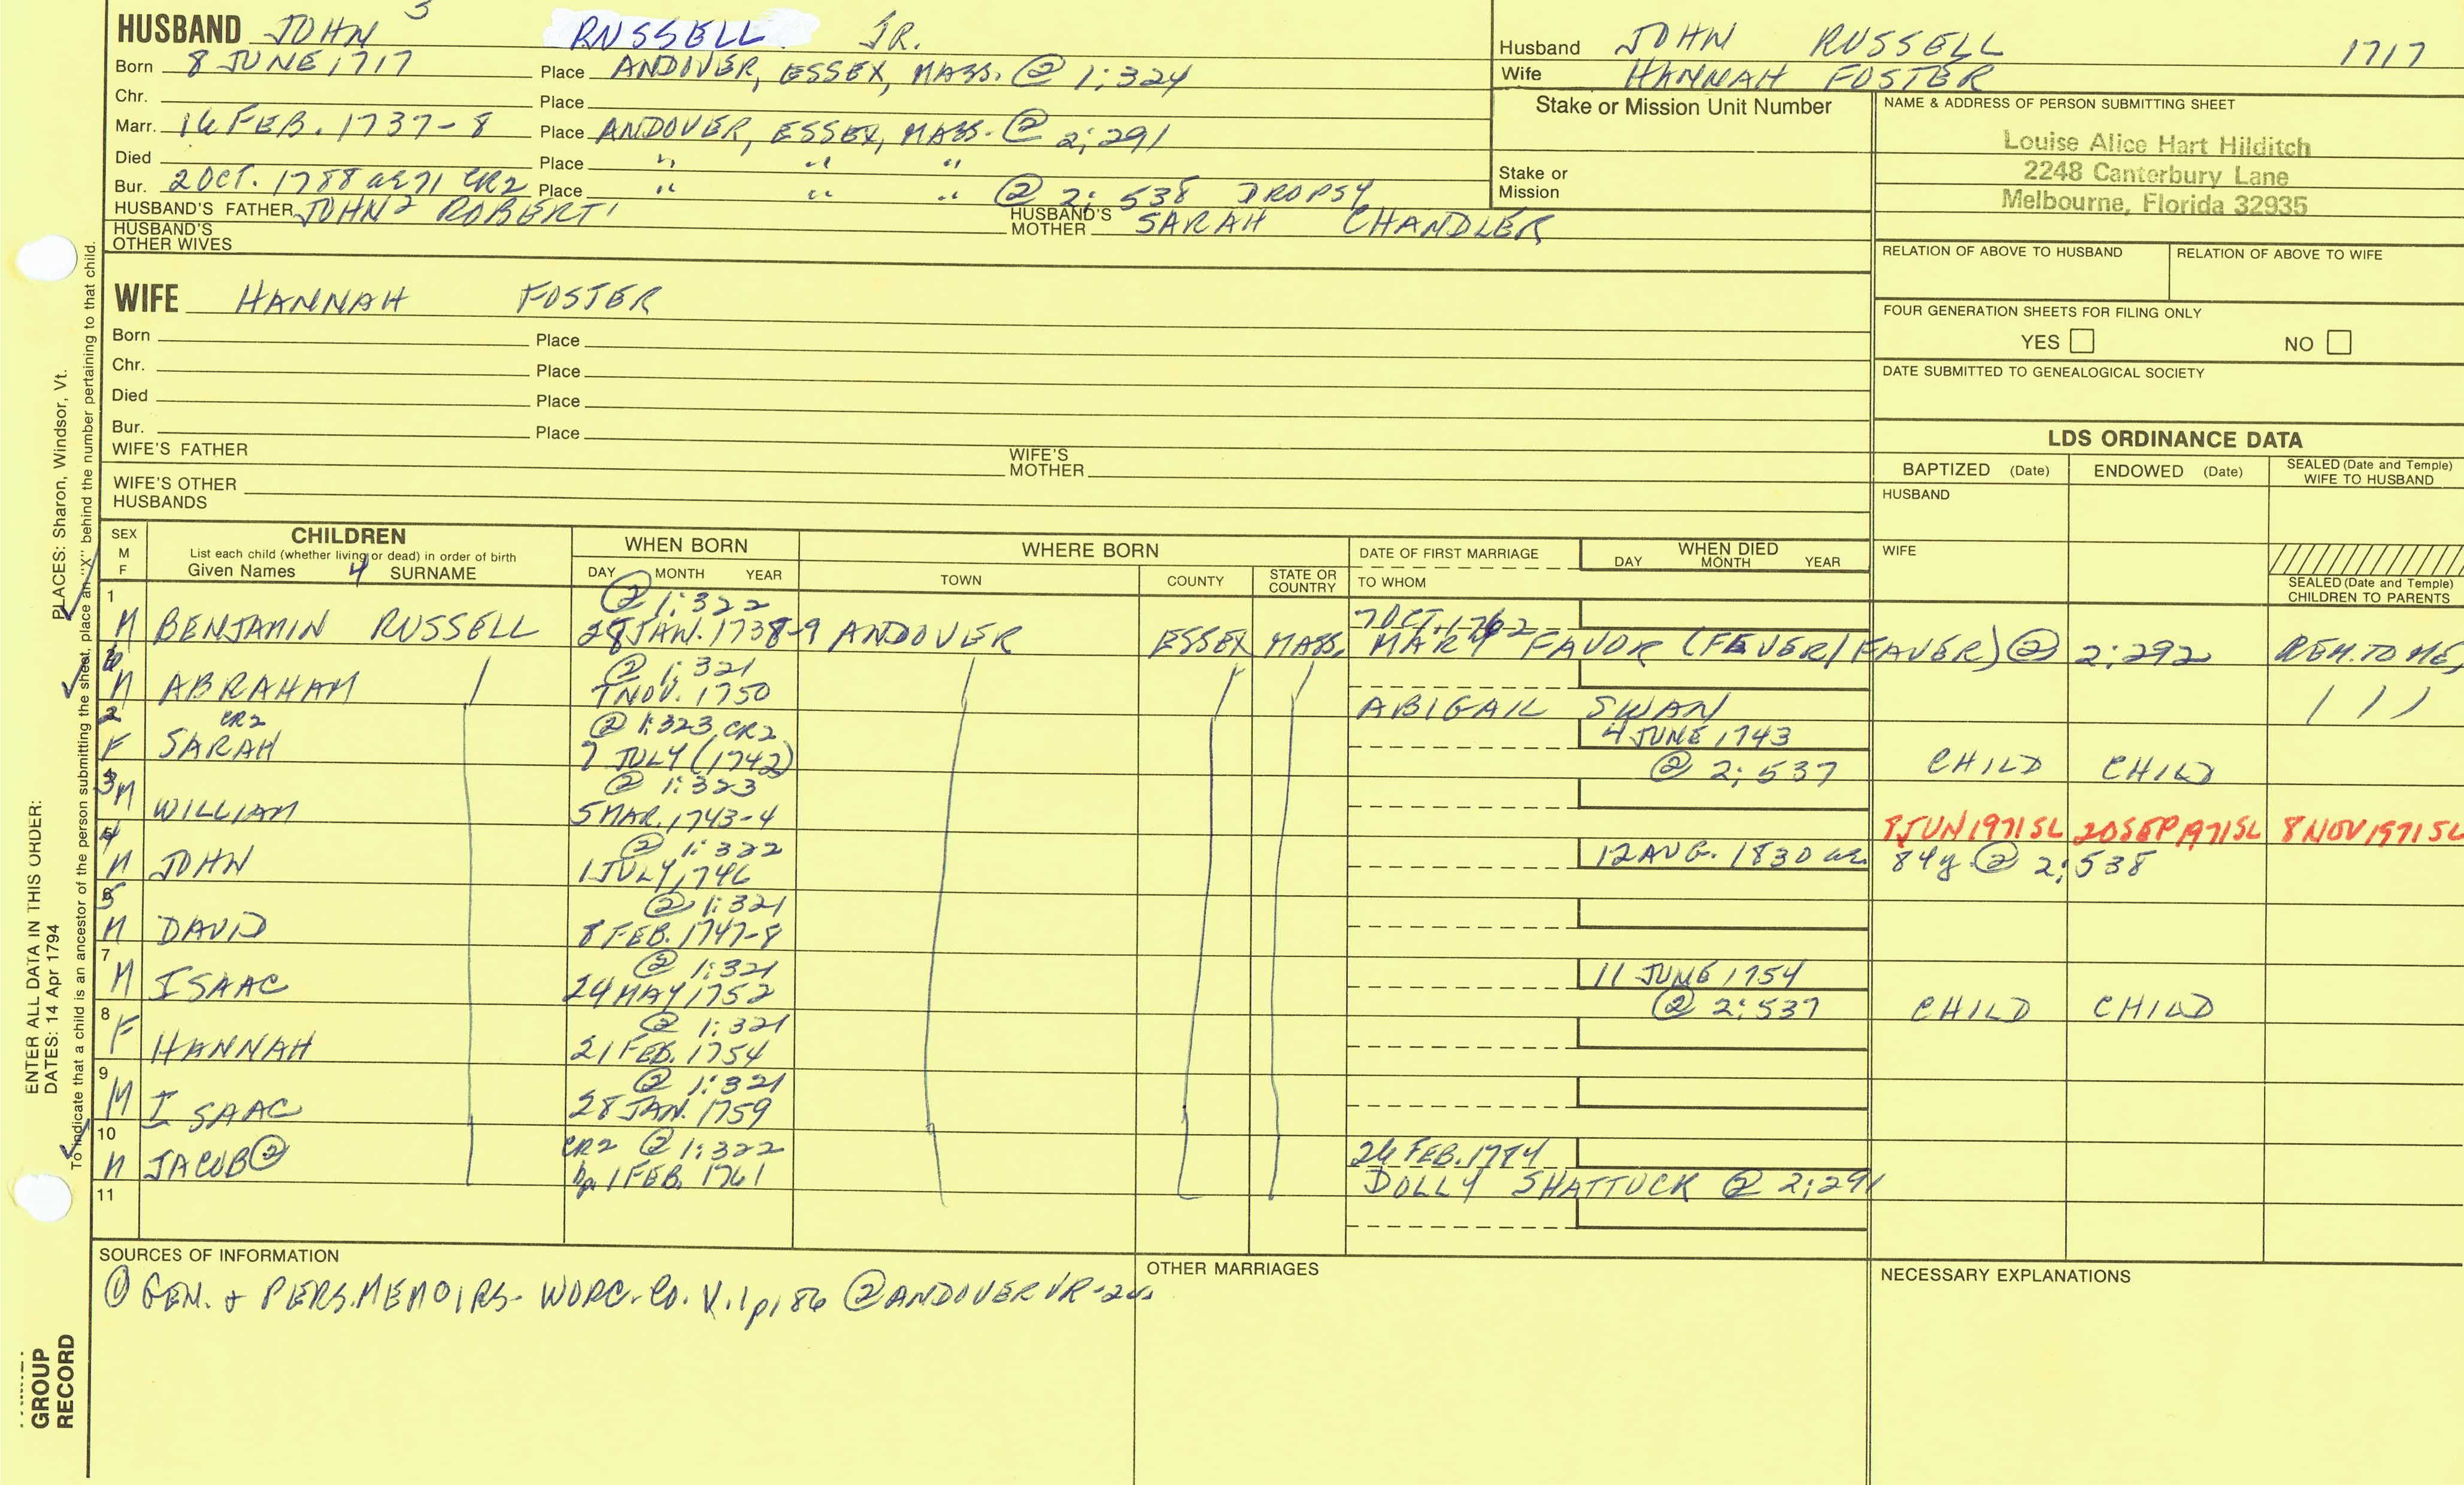 HUSBAND JOHN 3 RUSSELL JR.
Born 8 JUNE 1717 Place ANDOVER, ESSEX, MASS. ② 1:324
Chr. Place
Marr. 16 FEB. 1737-8 Place ANDOVER, ESSEX, MASS. ② 2:291
Died Place " " "
Bur. 2 OCT. 1788 ae 71 CR2 Place " " " ② 2:538 DROPSY
HUSBAND'S FATHER JOHN 2 ROBERT 1 HUSBAND'S MOTHER SARAH CHANDLER
HUSBAND'S OTHER WIVES
Husband JOHN RUSSELL 1717
Wife HANNAH FOSTER
Stake or Mission Unit Number
Stake or Mission
NAME & ADDRESS OF PERSON SUBMITTING SHEET
Louise Alice Hart Hilditch
2248 Canterbury Lane
Melbourne, Florida 32935
RELATION OF ABOVE TO HUSBAND RELATION OF ABOVE TO WIFE
FOUR GENERATION SHEETS FOR FILING ONLY
YES NO
DATE SUBMITTED TO GENEALOGICAL SOCIETY
WIFE HANNAH FOSTER
Born Place
Chr. Place
Died Place
Bur. Place
WIFE'S FATHER WIFE'S MOTHER
WIFE'S OTHER HUSBANDS
LDS ORDINANCE DATA
BAPTIZED (Date) ENDOWED (Date) SEALED (Date and Temple) WIFE TO HUSBAND
HUSBAND
WIFE
SEALED (Date and Temple) CHILDREN TO PARENTS
SEX M F
CHILDREN
List each child (whether living or dead) in order of birth
Given Names 4 SURNAME
WHEN BORN
DAY MONTH YEAR
WHERE BORN
TOWN COUNTY STATE OR COUNTRY
DATE OF FIRST MARRIAGE
TO WHOM
WHEN DIED
DAY MONTH YEAR
1 ② 1:322 7 OCT. 1762
M BENJAMIN RUSSELL 28 JAN. 1738-9 ANDOVER ESSEX MASS. MARY FAVOR (FEVER/FAVER) ② 2:292 REM. TO ME,
② 1:321
M ABRAHAM / 7 NOV. 1750 / / / ABIGAIL SWAN / / /
2 CR2 ② 1:323, CR2 4 JUNE 1743
F SARAH 7 JULY (1742) ② 2:537 CHILD CHILD
3 ② 1:323
M WILLIAM 5 MAR. 1743-4 8 JUN 1971 SL 20 SEP 1971 SL 8 NOV 1971 SL
4 ② 1:322 12 AUG. 1830 ae. 84y. ② 2:538
M JOHN 1 JULY 1746
5 ② 1:321
M DAVID 8 FEB. 1747-8
7 ② 1:321 11 JUNE 1754
M ISAAC 24 MAY 1752 ② 2:537 CHILD CHILD
8 ② 1:321
F HANNAH 21 FEB. 1754
9 ② 1:321
M ISAAC 28 JAN. 1759
10 CR2 ② 1:322 26 FEB. 1784
M JACOB ② bp 1 FEB. 1761 DOLLY SHATTUCK ② 2:291
11
SOURCES OF INFORMATION
① GEN. & PERS. MEMOIRS - WORC. Co. V. 1 p 186 ② ANDOVER VR - 2
OTHER MARRIAGES
NECESSARY EXPLANATIONS
ENTER ALL DATA IN THIS ORDER:
DATES: 14 Apr 1794
PLACES: Sharon, Windsor, Vt.
To indicate that a child is an ancestor of the person submitting the sheet, place an "X" behind the number pertaining to that child.
GROUP
RECORD